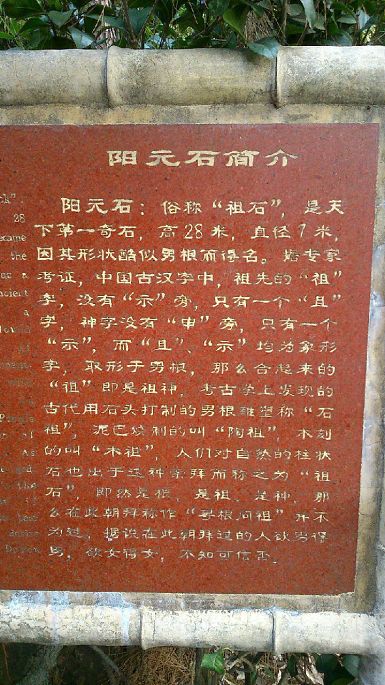 阳元石简介
阳元石：俗称“祖石”，是天
下第一奇石，高28米，直径7米，
因其形状酷似男根而得名。据专家
考证，中国古汉字中，祖先的“祖”
字，没有“示”旁，只有一个“且”
字，神字没有“申”旁，只有一个
“示”，而“且”、“示”均为象形
字，取形于男根，那么合起来的
“祖”即是祖神，考古学上发现的
古代用石头打制的男根雕塑称“石
祖”，泥巴烧制的叫“陶祖”，木刻
的叫“木祖”，人们对自然的柱状
石也出于这种崇拜而称之为“祖
石”，即然是根，是祖，是神，那
么在此朝拜称作“寻根问祖”并不
为过，据说在此朝拜过的人欲男得
男，欲女得女，不知可信否。
28
the
a
of
As
the